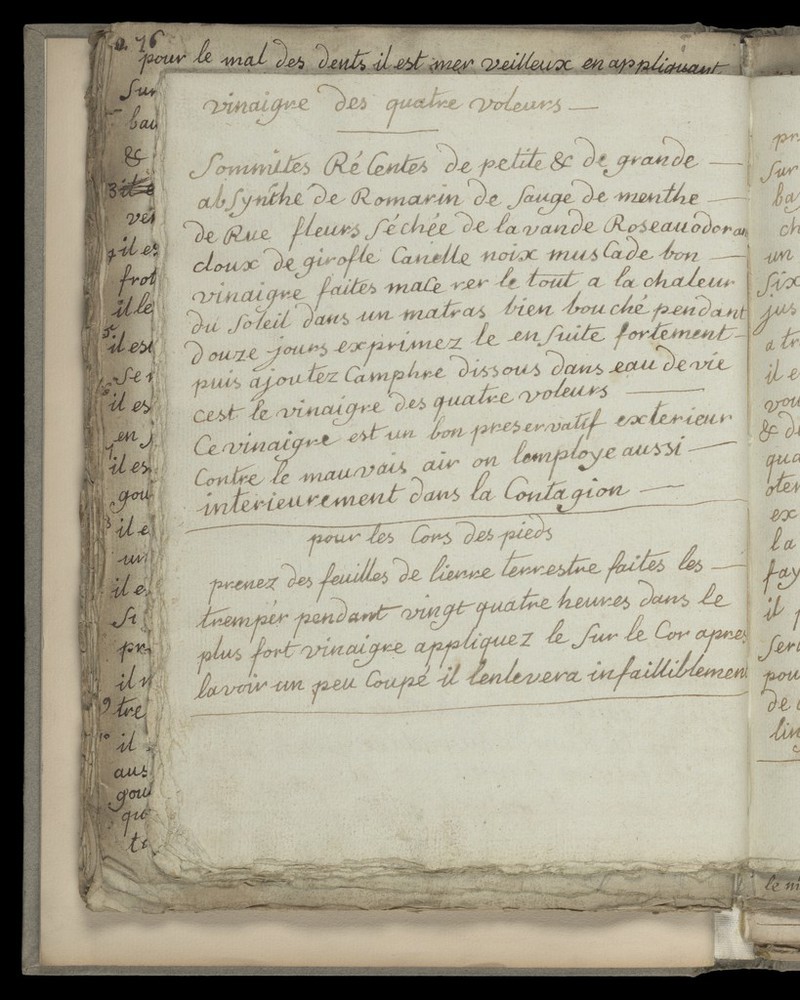 76
pour le mal des dents il est mer veilleux en appliquant
vinaigre des quatre voleurs —
Sommites Ré Centes de petite & de grande —
absynthe de Romarin de Sauge de menthe —
de Rue fleurs Séchée de la vande Roseau odoran
doux de girofle Canelle noix musCade bon —
vinaigre faites maCe rer le tout a la chaleur
du Soleil dans un matras bien bou ché pendant
douze jours exprimez le en Suite fortement —
puis ajoutez Camphre dissous dans eau de vie
cest le vinaigre des quatre voleurs —
Ce vinaigre est un bon preservatif exterieur
Contre le mauvais air on lemploye aussi —
interieurement dans la Contagion —
pour les Cors des pieds
prenez des feuilles de lierre terrestre faites les —
tremper pendant vingt quatre heures dans le
plus fort vinaigre appliquez le Sur le Cor apres
lavoir un peu Coupé il lenlevera infailliblement